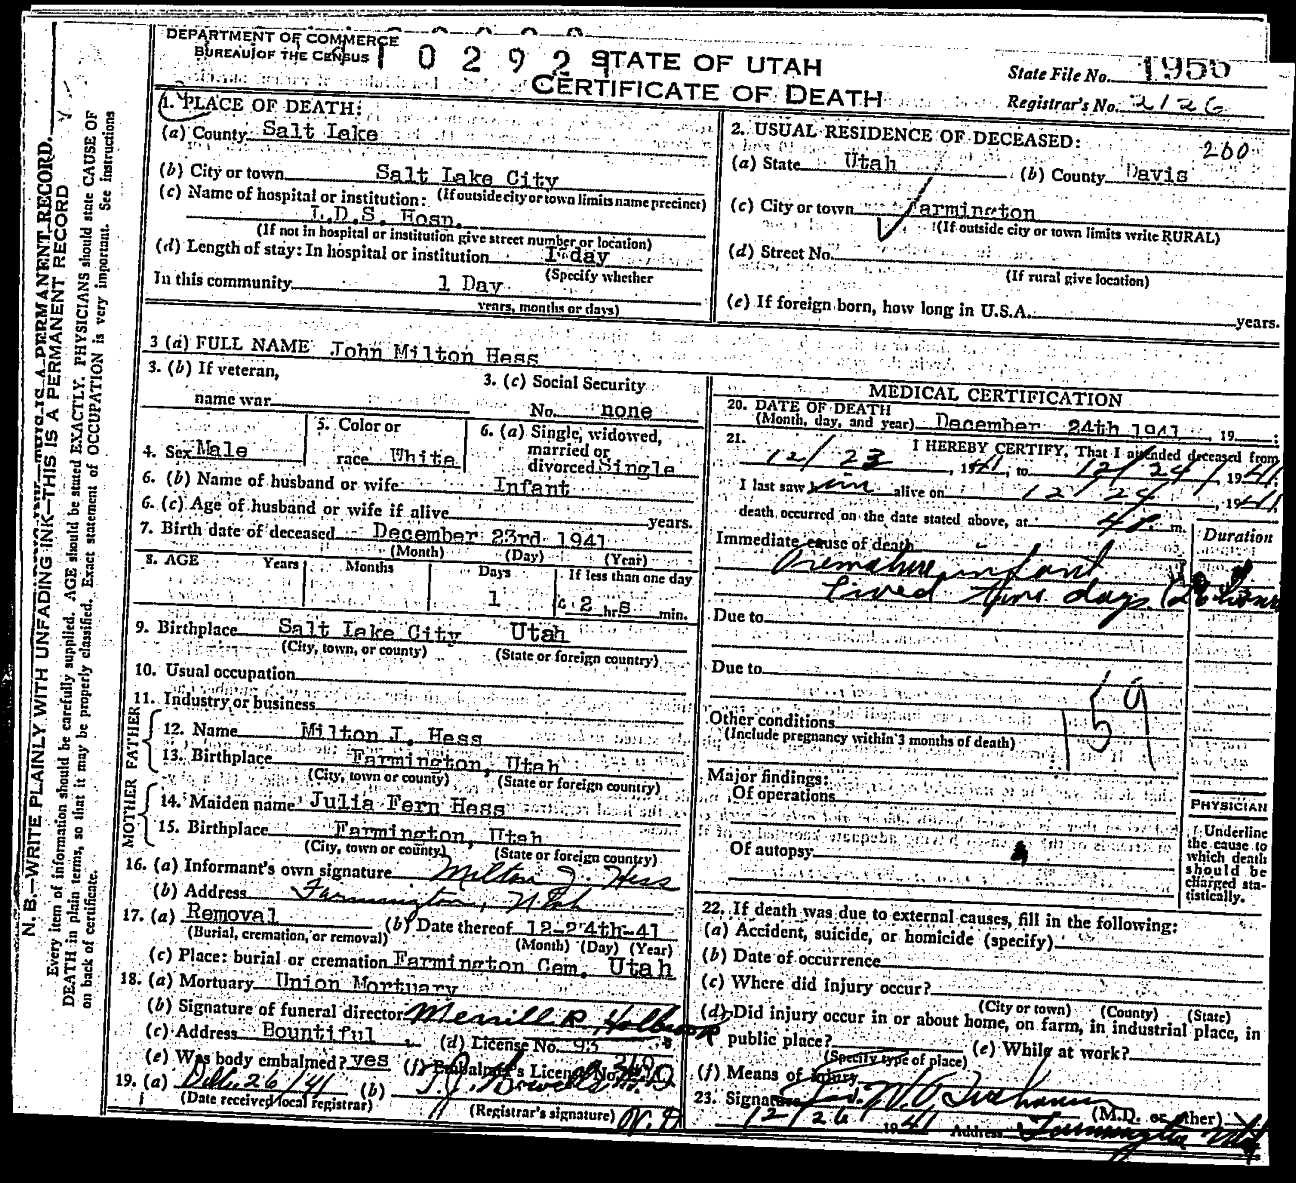 DEPARTMENT OF COMMERCE
BUREAU OF THE CENSUS
10292
STATE OF UTAH
CERTIFICATE OF DEATH
State File No. 1956
Registrar's No. 2126
1. PLACE OF DEATH:
(a) County Salt Lake
(b) City or town Salt Lake City
(If outside city or town limits name precinct)
(c) Name of hospital or institution:
L.D.S. Hosp.
(If not in hospital or institution give street number or location)
(d) Length of stay: In hospital or institution 1 day
(Specify whether
In this community 1 Day
years, months or days)
2. USUAL RESIDENCE OF DECEASED:
260
(a) State Utah (b) County Davis
(c) City or town Farmington
(If outside city or town limits write RURAL)
(d) Street No.
(If rural give location)
(e) If foreign born, how long in U.S.A. years.
3 (a) FULL NAME John Milton Hess
3. (b) If veteran,
name war
3. (c) Social Security
No. none
4. Sex Male
5. Color or
race White
6. (a) Single, widowed,
married or
divorced Single
6. (b) Name of husband or wife Infant
6. (c) Age of husband or wife if alive years.
7. Birth date of deceased December 23rd 1941
(Month) (Day) (Year)
8. AGE Years Months Days If less than one day
1 2 hrs min.
9. Birthplace Salt Lake City Utah
(City, town, or county) (State or foreign country)
10. Usual occupation
11. Industry or business
FATHER
12. Name Milton J. Hess
13. Birthplace Farmington, Utah
(City, town or county) (State or foreign country)
MOTHER
14. Maiden name Julia Fern Hess
15. Birthplace Farmington, Utah
(City, town or county) (State or foreign country)
16. (a) Informant's own signature Milton J. Hess
(b) Address Farmington, Utah
17. (a) Removal (b) Date thereof 12-24th-41
(Burial, cremation, or removal) (Month) (Day) (Year)
(c) Place: burial or cremation Farmington Cem. Utah
18. (a) Mortuary Union Mortuary
(b) Signature of funeral director Merrill R Holbrook
(c) Address Bountiful (d) License No. 93
(e) Was body embalmed? yes (f) Embalmer's License No.
19. (a) Dec. 26/41 (b)
(Date received local registrar) (Registrar's signature)
MEDICAL CERTIFICATION
20. DATE OF DEATH
(Month, day, and year) December 24th 1941, 19
21. I HEREBY CERTIFY, That I attended deceased from
12/23, 1941, to 12/24, 1941;
I last saw him alive on 12/24, 1941
death occurred on the date stated above, at m.
Duration
Immediate cause of death
Premature infant
Lived two days
Due to
Due to
159
Other conditions
(Include pregnancy within 3 months of death)
Major findings:
Of operations
Of autopsy
PHYSICIAN
Underline
the cause to
which death
should be
charged sta-
tistically.
22. If death was due to external causes, fill in the following:
(a) Accident, suicide, or homicide (specify)
(b) Date of occurrence
(c) Where did injury occur?
(City or town) (County) (State)
(d) Did injury occur in or about home, on farm, in industrial place, in
public place?
(Specify type of place)
(e) While at work?
(f) Means of injury
23. Signature
(M.D. or other)
12/26 1941 Address Farmington Utah
N. B.—WRITE PLAINLY WITH UNFADING INK—THIS IS A PERMANENT RECORD
Every item of information should be carefully supplied. AGE should be stated EXACTLY. PHYSICIANS should state CAUSE OF
DEATH in plain terms, so that it may be properly classified. Exact statement of OCCUPATION is very important. See instructions
on back of certificate.